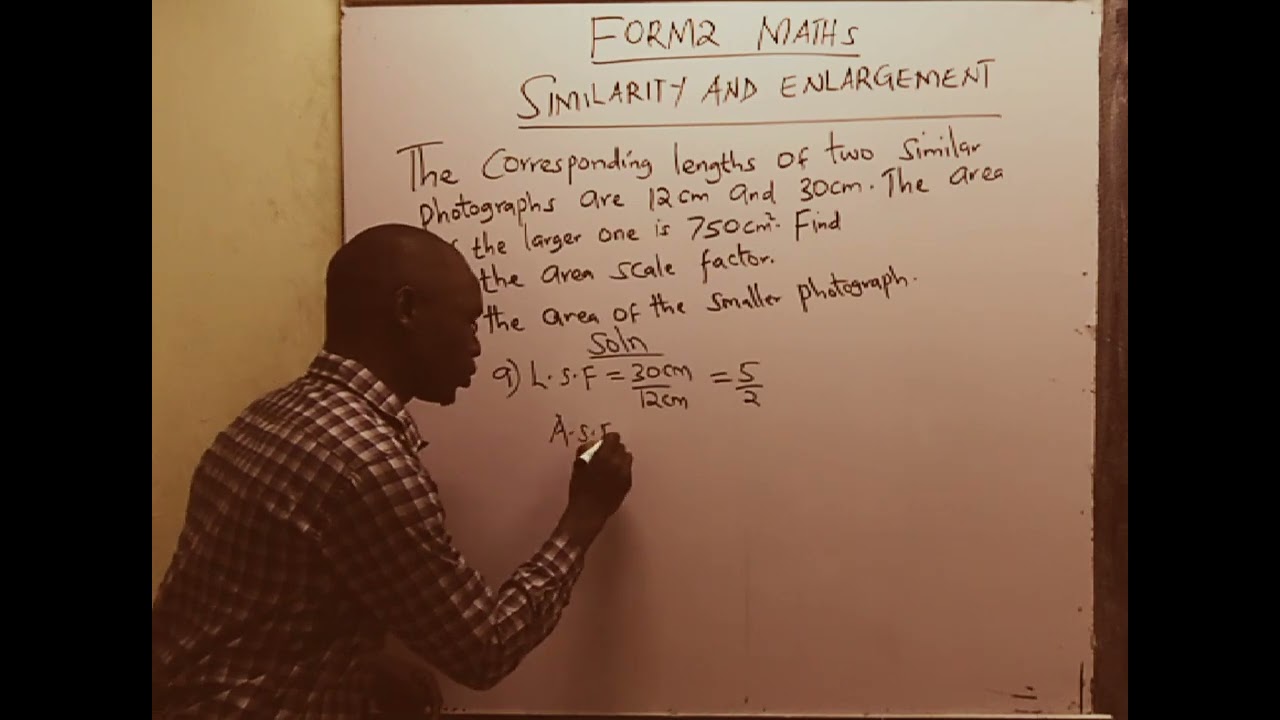 FORM2 MATHS
SIMILARITY AND ENLARGEMENT
The Corresponding lengths of two similar
photographs are 12cm and 30cm. The area
the larger one is 750cm². Find
the area scale factor.
the area of the smaller photograph.
Soln
a) L.S.F = 30cm/12cm = 5/2
A.S.F